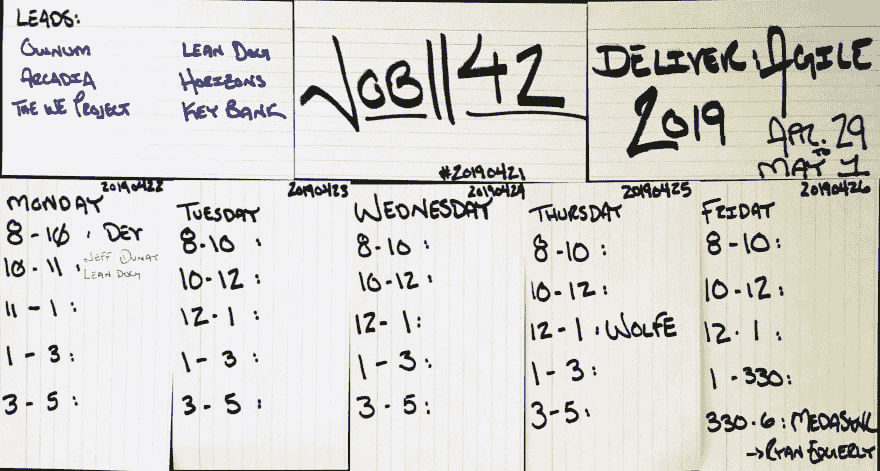 LEADS:
LEAN DOG
ARCADIA HORIZONS
THE WE PROJECT KEY BANK
JOB||42
#20190421
DELIVER:AGILE
2019
APR. 29
TO
MAY 1
20190422
MONDAY
8-10 : DEV
10-11 : JEFF
LEAN DOG
11-1:
1-3:
3-5:
20190423
TUESDAY
8-10 :
10-12:
12-1:
1-3:
3-5:
20190424
WEDNESDAY
8-10:
10-12:
12-1:
1-3:
3-5:
20190425
THURSDAY
8-10:
10-12:
12-1: WOLFE
1-3:
3-5:
20190426
FRIDAY
8-10:
10-12:
12-1:
1-330:
330-6:
→RYAN